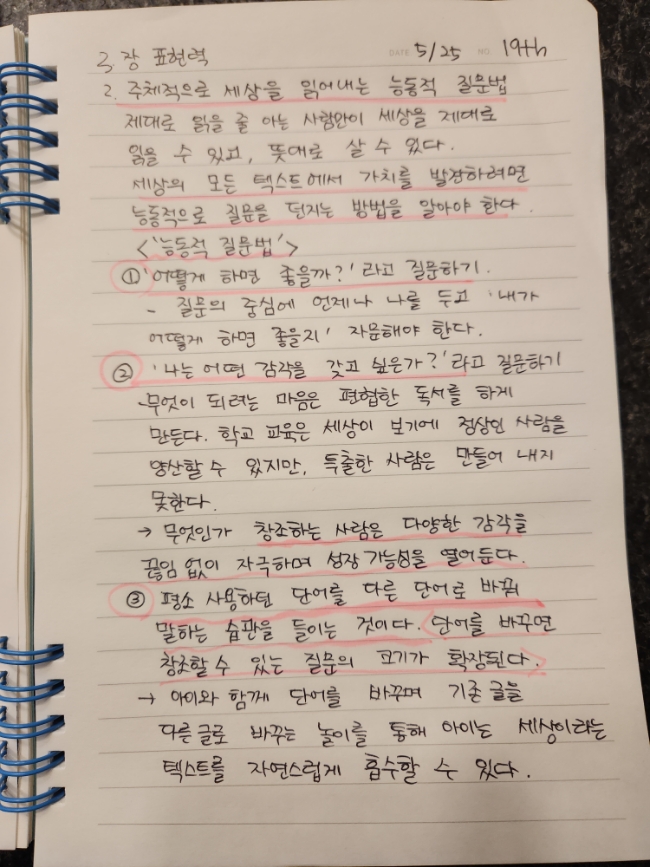 3. 장 표현력 DATE 5/25 NO. 19th
2. 주체적으로 세상을 읽어내는 능동적 질문법
제대로 읽을 줄 아는 사람만이 세상을 제대로
읽을 수 있고, 뜻대로 살 수 있다.
세상의 모든 텍스트에서 가치를 발견하려면
능동적으로 질문을 던지는 방법을 알아야 한다.
<'능동적 질문법'>
① '어떻게 하면 좋을까?' 라고 질문하기.
- 질문의 중심에 언제나 나를 두고 '내가
어떻게 하면 좋을지' 자문해야 한다.
② '나는 어떤 감각을 갖고 싶은가?' 라고 질문하기
- 무엇이 되려는 마음은 편협한 독서를 하게
만든다. 학교 교육은 세상이 보기에 정상인 사람을
양산할 수 있지만, 특출한 사람은 만들어 내지
못한다.
→ 무엇인가 창조하는 사람은 다양한 감각을
끊임 없이 자극하며 성장 가능성을 열어둔다.
③ 평소 사용하던 단어를 다른 단어로 바꿔
말하는 습관을 들이는 것이다. <단어를 바꾸면
창조할 수 있는 질문의 크기가 확장된다.>
→ 아이와 함께 단어를 바꾸며 기존 글을
다른 글로 바꾸는 놀이를 통해 아이는 세상이라는
텍스트를 자연스럽게 흡수할 수 있다.